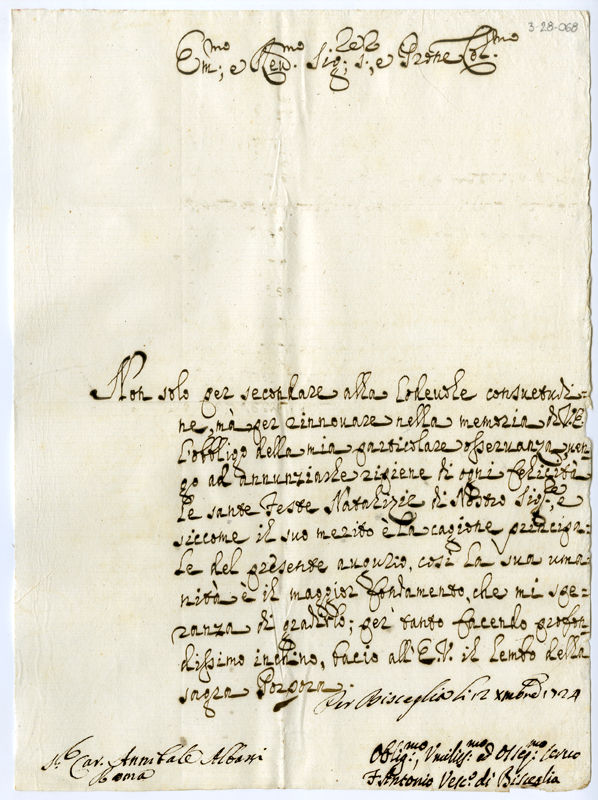 3-28-068
Em:mo, e Reu:mo Sig:re s:, e Prone Col:mo
Non solo per secondare alla lodeuole consuetudi=
ne, mà per rinnouare nella memoria di V.E.
l'obbligo della mia particolare osseruanza, uen=
go ad annunziarle ripiene di ogni felicità
le sante Feste Natalizie di Nostro Sig:re, e
siccome il suo merito è la cagione principa=
le del presente augurio, così la sua uma=
nità è il maggior fondamento, che mi spe=
ranza di gradirlo; per tanto facendo profon=
dissimo inchino, bacio all'E.V. il lembo della
sagra Porpora.
Bisceglia li 12 Xmbre 1724
Car. Annibale Albani
Roma
Oblig:mo, Vmiliss:mo ed Osseq:mo Seruo
F. Antonio Vesc.o di Bisceglia